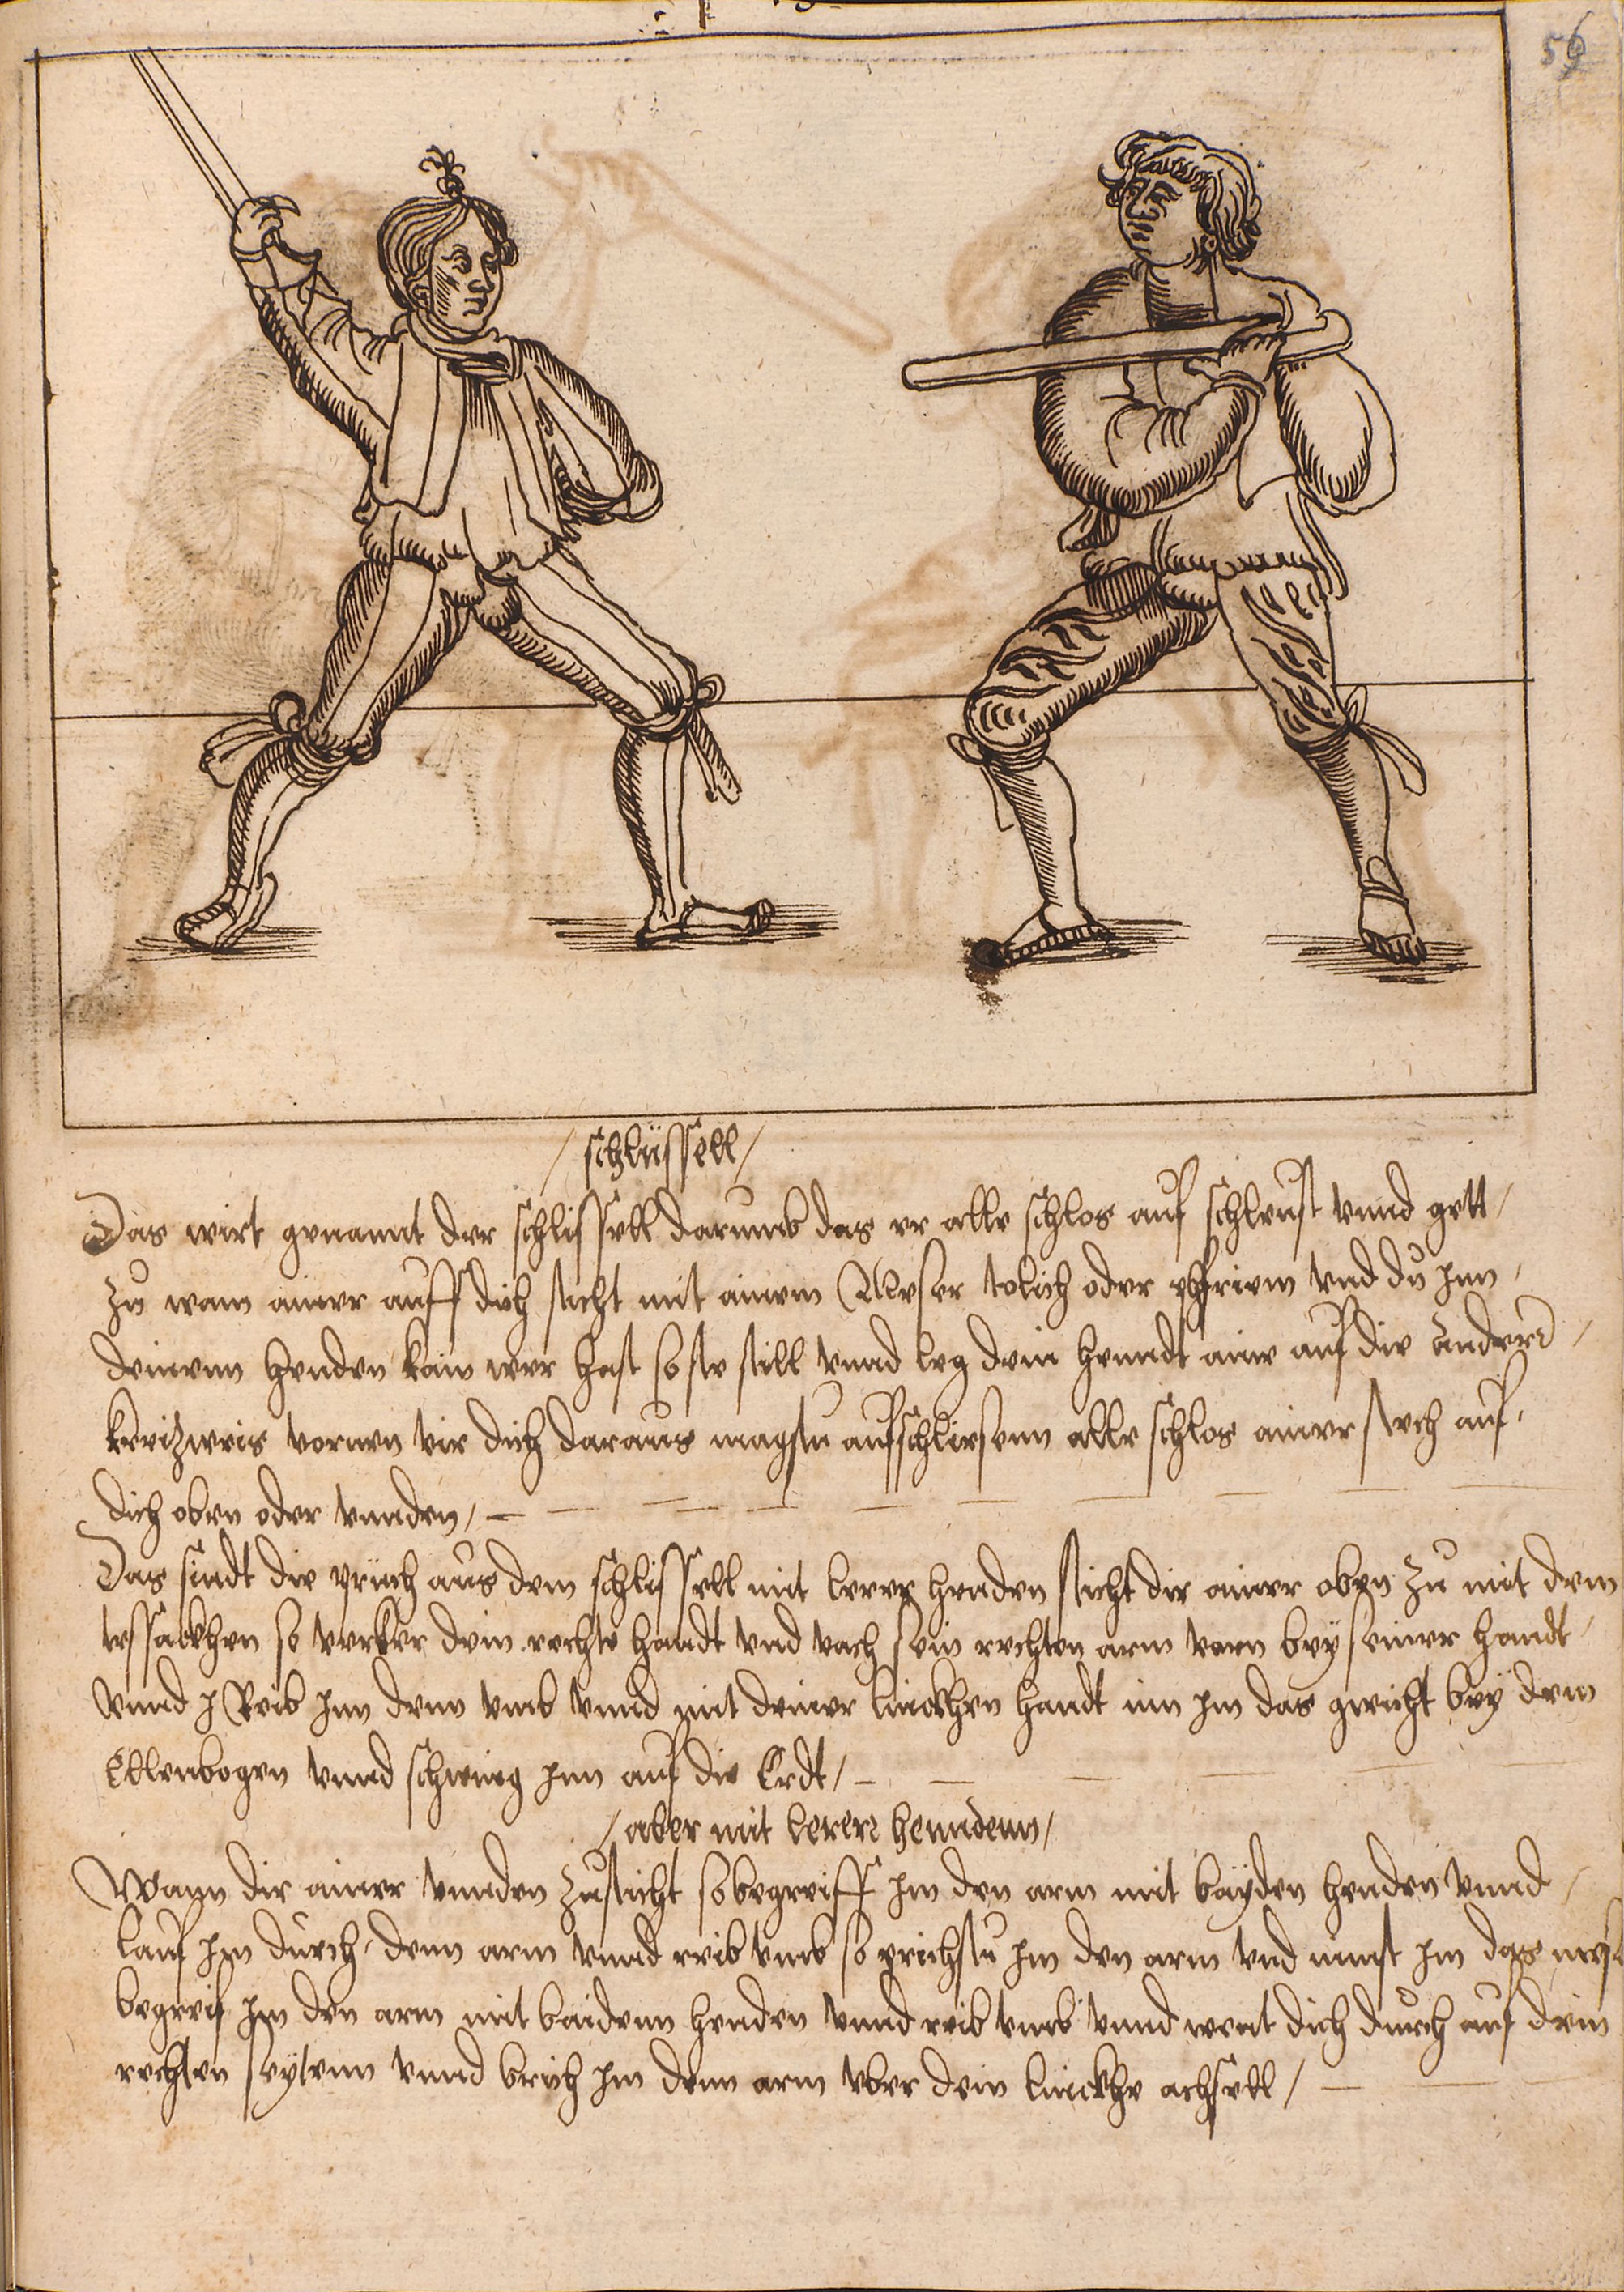 56
/ schlüssell /
Das wirt genannt der schlissell darumb das er alle schlos auf schleust vnnd gett /
Zu wann ainer auff dich sticht mit ainem Messer tolich oder pfriem vnd du Inn /
deinenn henden kain wer hast so ste still vnnd leg dein henndt aine auf die Andern /
kreizweis vornen vir dich daraus magstu aufschliessenn alle schlos ainer stech auf /
dich oben oder vnnden / –
Das sindt die prüch aus dem schlissell mit lerer henden sticht dir ainer oben zu mit dem
tessackhen so verker dein rechte handt vnd vach sein rechten arm vorn bey seiner handt /
vnnd Reib Inn denn vmb vnnd mit deiner linckhen handt nim Im das gwicht bey dem
Ellenbogen vnnd schwing Inn auf die Erdt / –
/ aber mit lerern henndenn /
Wann dir ainer vnnden Zusticht so begreiff Im den arm mit bayden henden vnnd /
lauf Im durch denn arm vnnd reib vmb so prichstu Im den arm vnd nimst Im das
begreif Im den arm mit baidenn henden vnnd reib vmb vnnd went dich durch auf dein
rechten seytenn vnnd brich Im denn arm vber dein linckhe achsell / –